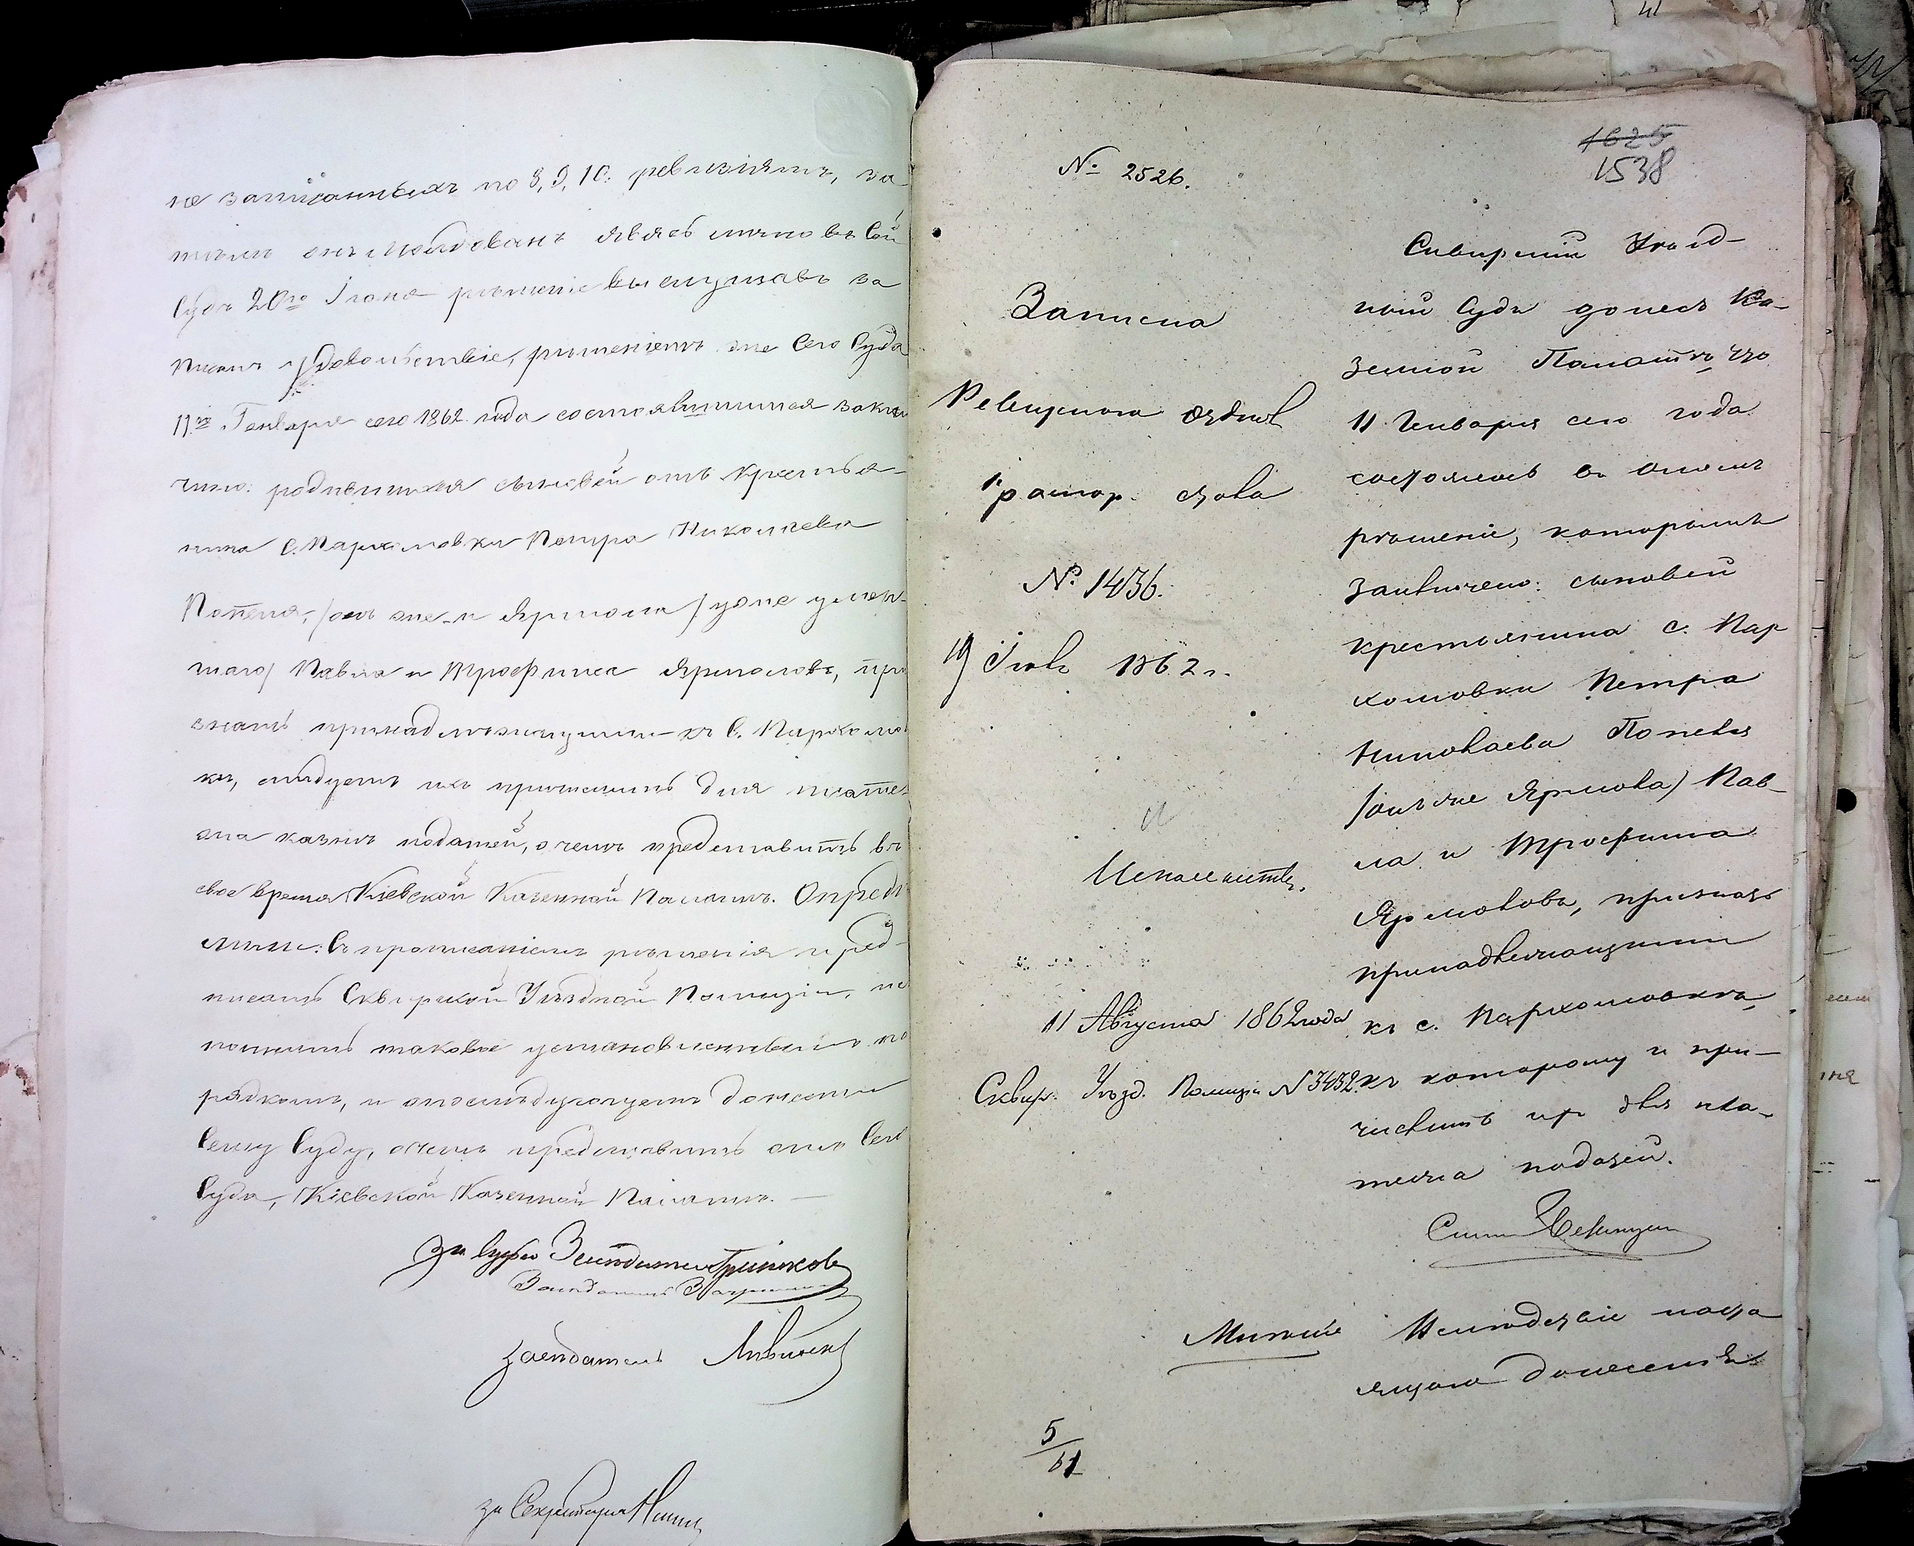 не записанныхъ по 8, 9, 10. ревизіямъ, за-
тѣмъ онъ Молдованъ явясь лично въ сей
Судъ 20го Іюня рѣшеніе выслушавъ за
писалъ удовольствіе, рѣшеніемъ же сего Суда
11го Генваря сего 1862 года состоявшимся заклю
чено: родившихся сыновей отъ крестья-
нина с. Пархомовки Петра Николаева
Попеля, (онъ же и Ярмола) уже умер-
шаго) Павла и Трофима Ярмоловъ, при
знать принадлежащими къ с. Пархомов
кѣ, слѣдуетъ ихъ причислить для плате-
жа казнѣ податей, о чемъ представить въ
свое время Кіевской Казенной Палатѣ. Опредѣ
лили: Съ прописаніемъ рѣшенія пред-
писать Сквирской Уѣздной Полиціи, ис
полнить таковое установленнымъ по
рядкомъ, и о послѣдующемъ донести
сему Суду, о чемъ представить
Суда, Кіевской Казенной Палатѣ. —
За Судью Засѣдатель
Засѣдатель
Засѣдатель
за Секретаря
1625
1538
№ 2526.
Записка
Ревизскаго отдѣл
1 распор. стола
№ 1436.
19 Іюл 1862 г.
11 Августа 1862 года
Сквир. Уѣзд. Полиціи № 3432
Сквирскій Уѣзд-
ный Судъ донесъ Ка-
зенной Палатѣ, что
11 Генваря сего года
состоялось въ ономъ
рѣшеніе, которымъ
заключено: сыновей
крестьянина с. Пар
хомовки Петра
Николаева Попеля
(онъ же Ярмола) Пав-
ла и Трофима
Ярмоловъ, признать
принадлежащими
къ с. Пархомовкѣ,
къ которому и при-
числить ихъ для пла-
тежа податей.
Мнѣніе
настоящаго донесенія
5/61